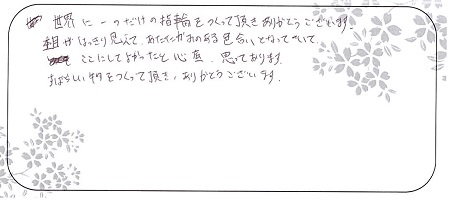 世界に一つだけの指輪をつくって頂きありがとうございます。
杢目がはっきり見えて、あたたかみのある色合いとなっていて
ここにしてよかったと心底思っております。
すばらしい物をつくって頂き、ありがとうございます。